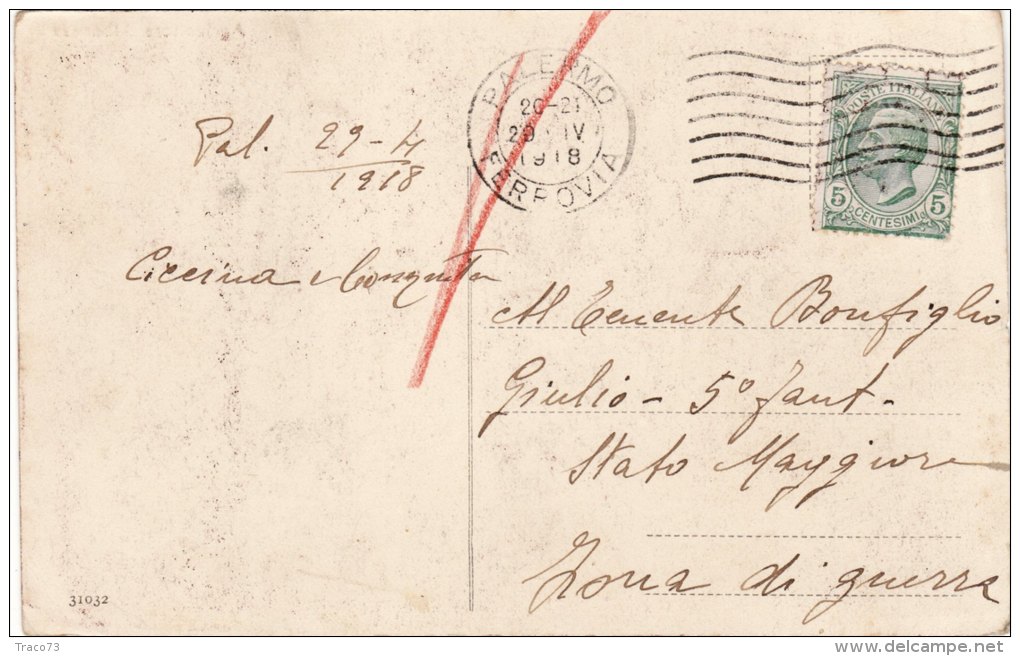 Pal. 29-4
1918
Ciccina
PALERMO
20-21
29 IV
1918
FERROVIA
POSTE ITALIANE
5 CENTESIMI 5
Al Tenente Bonfiglio
Giulio - 5° Fant-
Stato Maggiore
Zona di guerra
31032
Traco73
delcampe.net